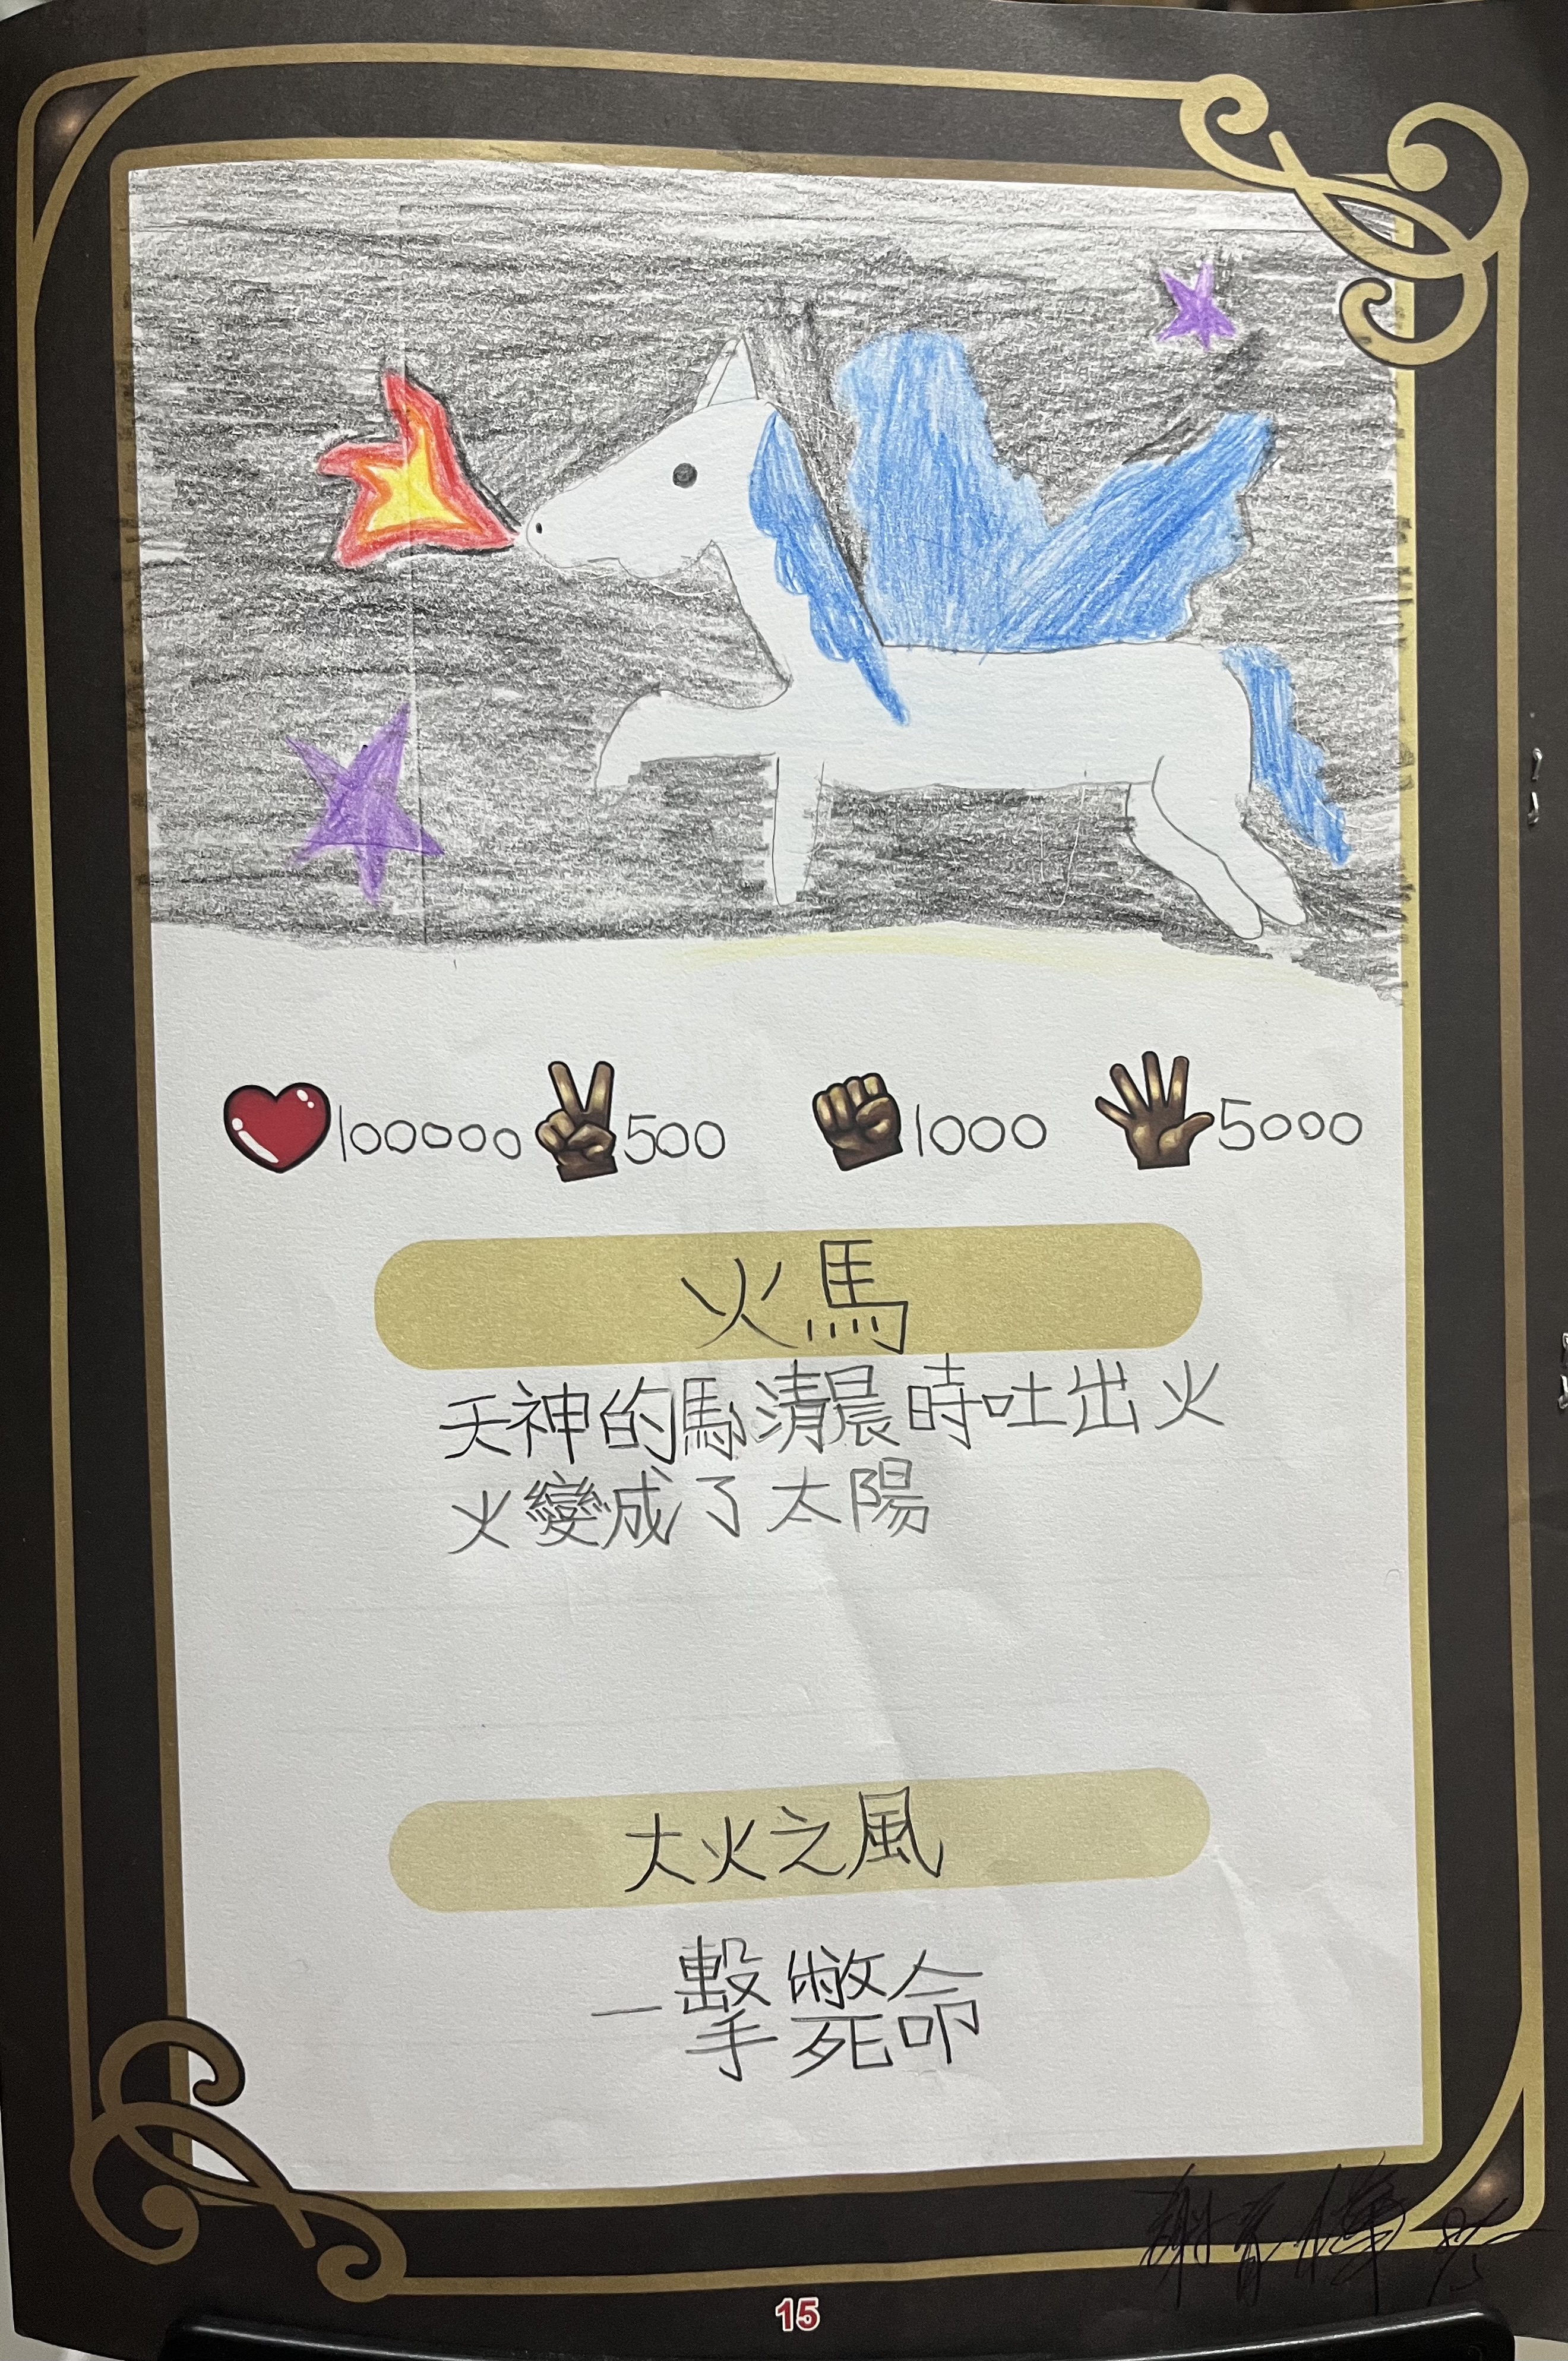 100000 500 1000 5000
火馬
天神的馬清晨時吐出火
火變成了太陽
大火之風
一擊斃命
15